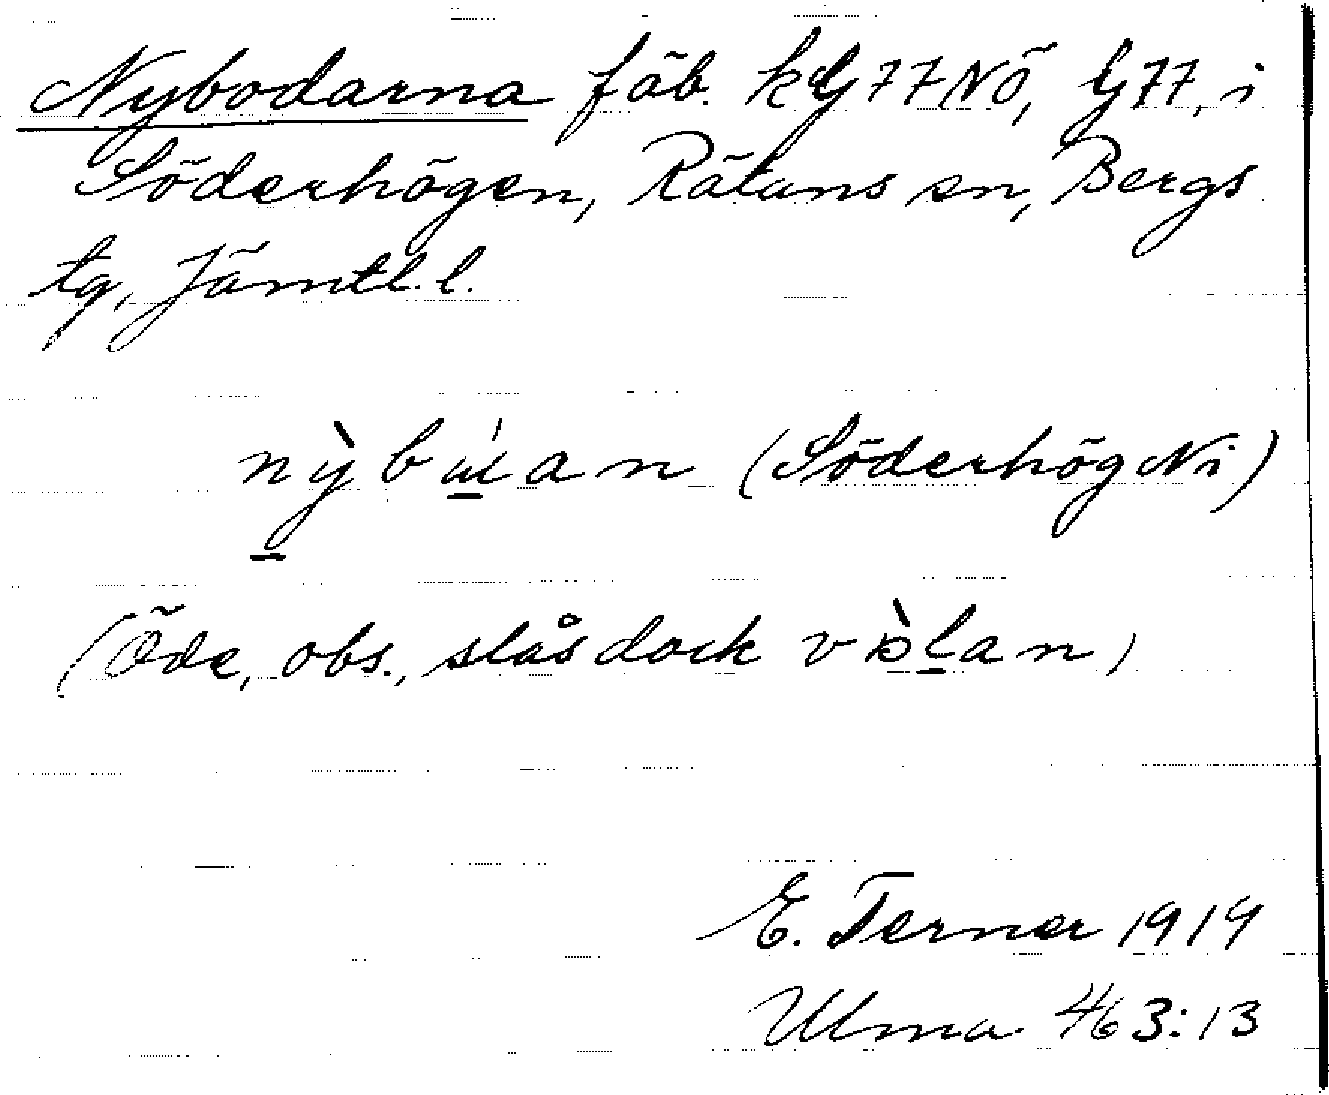 Nybodarna fäb. kG77NÖ, G77, i
Söderhögen, Rätans sn, Bergs
tg, Jämtl. l.
(Söderhög Ni)
(Öde, obs., slås dock
E. Terner 1919
Ulma 463:13